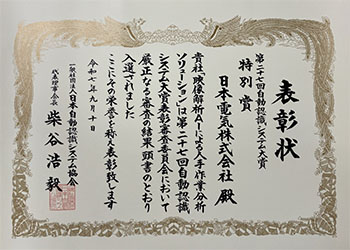 表彰状
第二十七回自動認識システム大賞
特別賞
日本電気株式会社 殿
貴社「映像解析AIによる人手作業分析
ソリューション」は第二十七回自動認識
システム大賞表彰審査委員会において
厳正なる審査の結果頭書のとおり
入選されました
ここにその栄誉を称え表彰致します
令和七年九月十日
一般社団法人日本自動認識システム協会
代表理事会長 柴谷浩毅